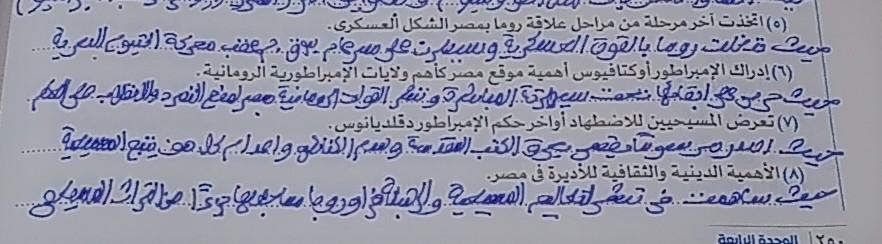 (٥) اتخذت آخر مرحلة من مراحل علاقة روما بمصر الشكل العسكرى.
حيث تدخلت روما بالقوة العسكرية وسيطرت على مصر عام ٣٠ ق.م عقب معركة اكتيوم البحرية
(٦) إدراك الإمبراطور أوكتافيوس أهمية موقع مصر كأهم ولايات الإمبراطورية الرومانية.
حيث حرص على ابقائها تحت سيطرته المباشرة ونشر القوات الرومانية بمصر لمنع التمرد والانقلاب على الحكم
(٧) تعرض المسيحيين للاضطهاد أواخر حكم الإمبراطور دقلديانوس.
حيث اصدر مرسوماً يقضى بحرق الكتب المقدسة وهدم الكنائس واعدام كل من يتبع المسيحية
(٨) الأهمية الدينية والثقافية للأديرة فى مصر.
حيث ساهمت فى نشر تعاليم المسيحية والرهبنة فى اوروبا مما جعلها جزءًا من التراث المسيحى
٢٥٠ الوحدة الرابعة